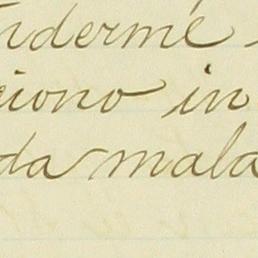 nderme
iono in
da mala